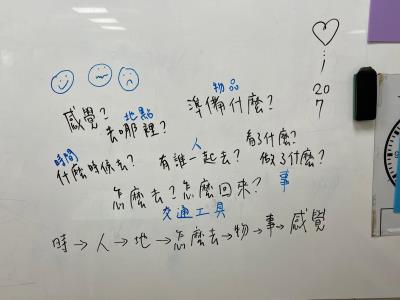 物品
感覺?
地點
準備什麼?
去哪裡?
20
7
人
看了什麼?
時間
什麼時候去?
有誰一起去?
做了什麼?
怎麼去?怎麼回來?
事
交通工具
時→人→地→怎麼去→物→事→感覺